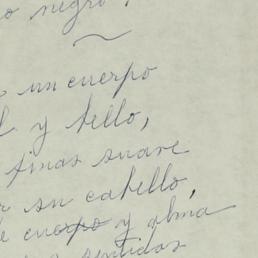 o negro.
un cuerpo
y bello,
finas suave
su cabello,
cuerpo y alma
sentidos